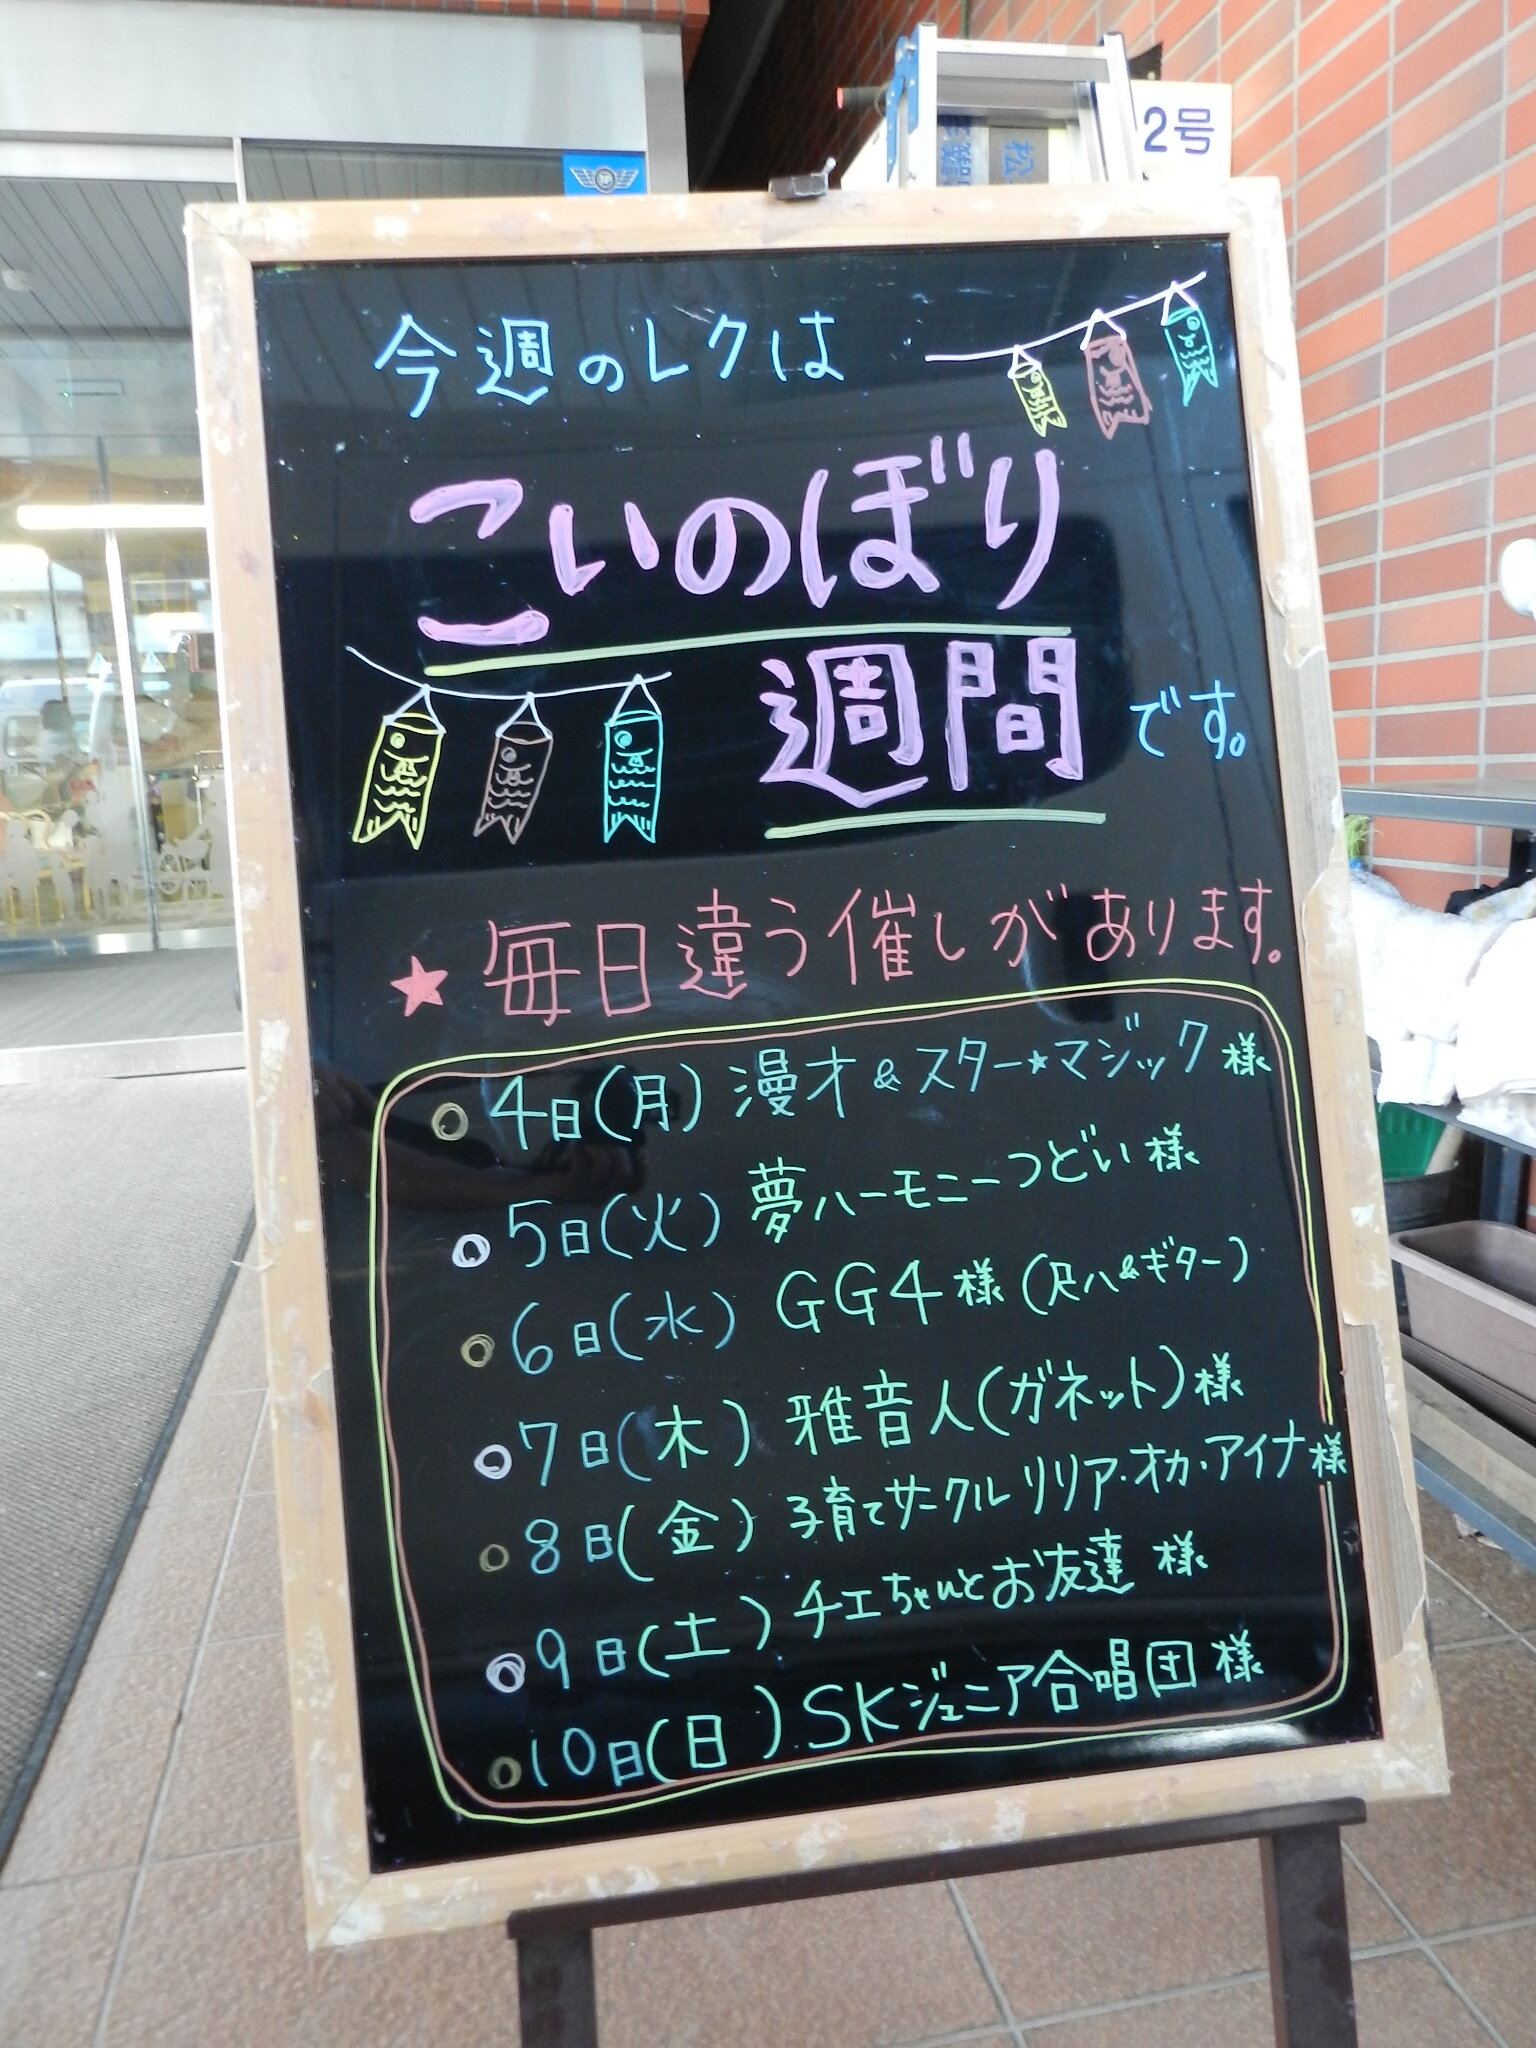 2号
松
今週のレクは
こいのぼり
週間です。
★毎日違う催しがあります。
4日(月) 漫才&スター★マジック様
5日(火) 夢ハーモニーつどい様
6日(水) GG4様(尺八&ギター)
7日(木) 雅音人(ガネット)様
8日(金) 子育てサークルリリア・オカ・アイナ様
9日(土) チエちゃんとお友達 様
10日(日) SKジュニア合唱団 様